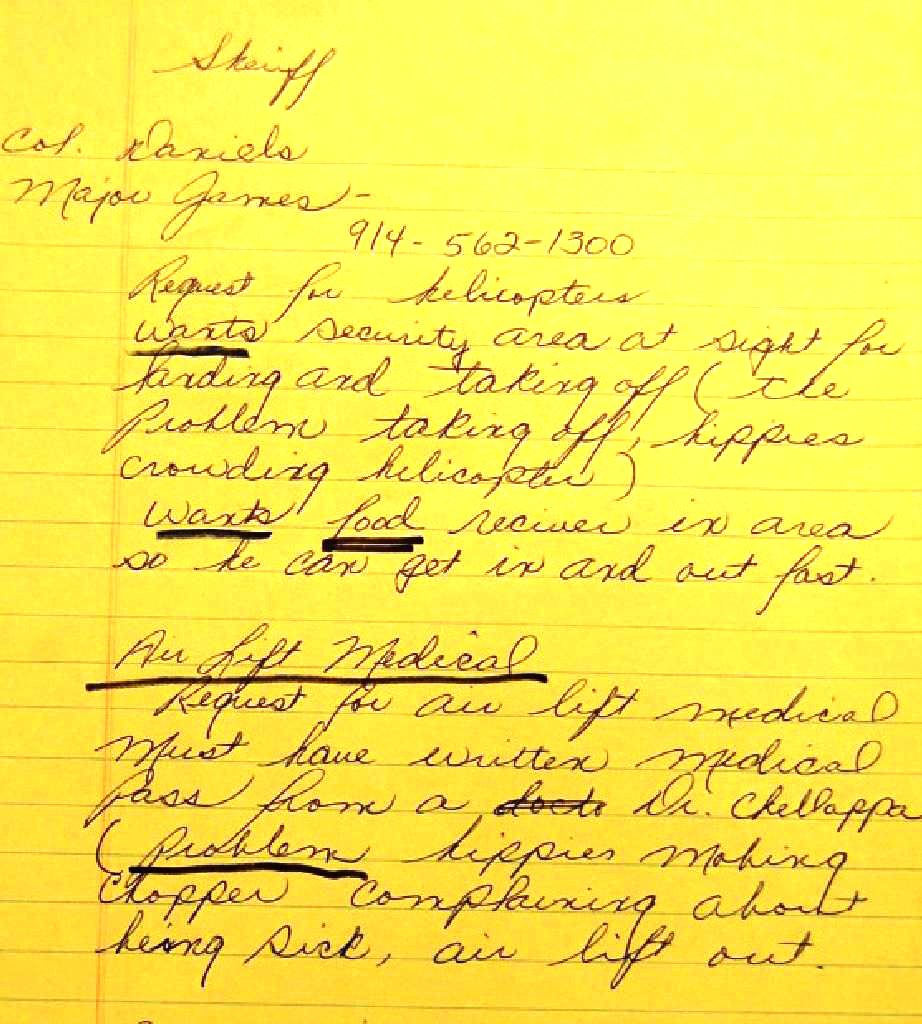 Sheriff
Col. Daniels
Major James -
914-562-1300
Request for helicopters
wants security area at sight for
landing and taking off (the
Problem taking off, hippies
crowding helicopter)
wants food reciver in area
so he can get in and out fast.
Air Lift Medical
Request for air lift medical
Must have written medical
pass from a docto Dr. Chellappa
(Problem hippies Mobing
Chopper complaining about
being sick, air lift out.